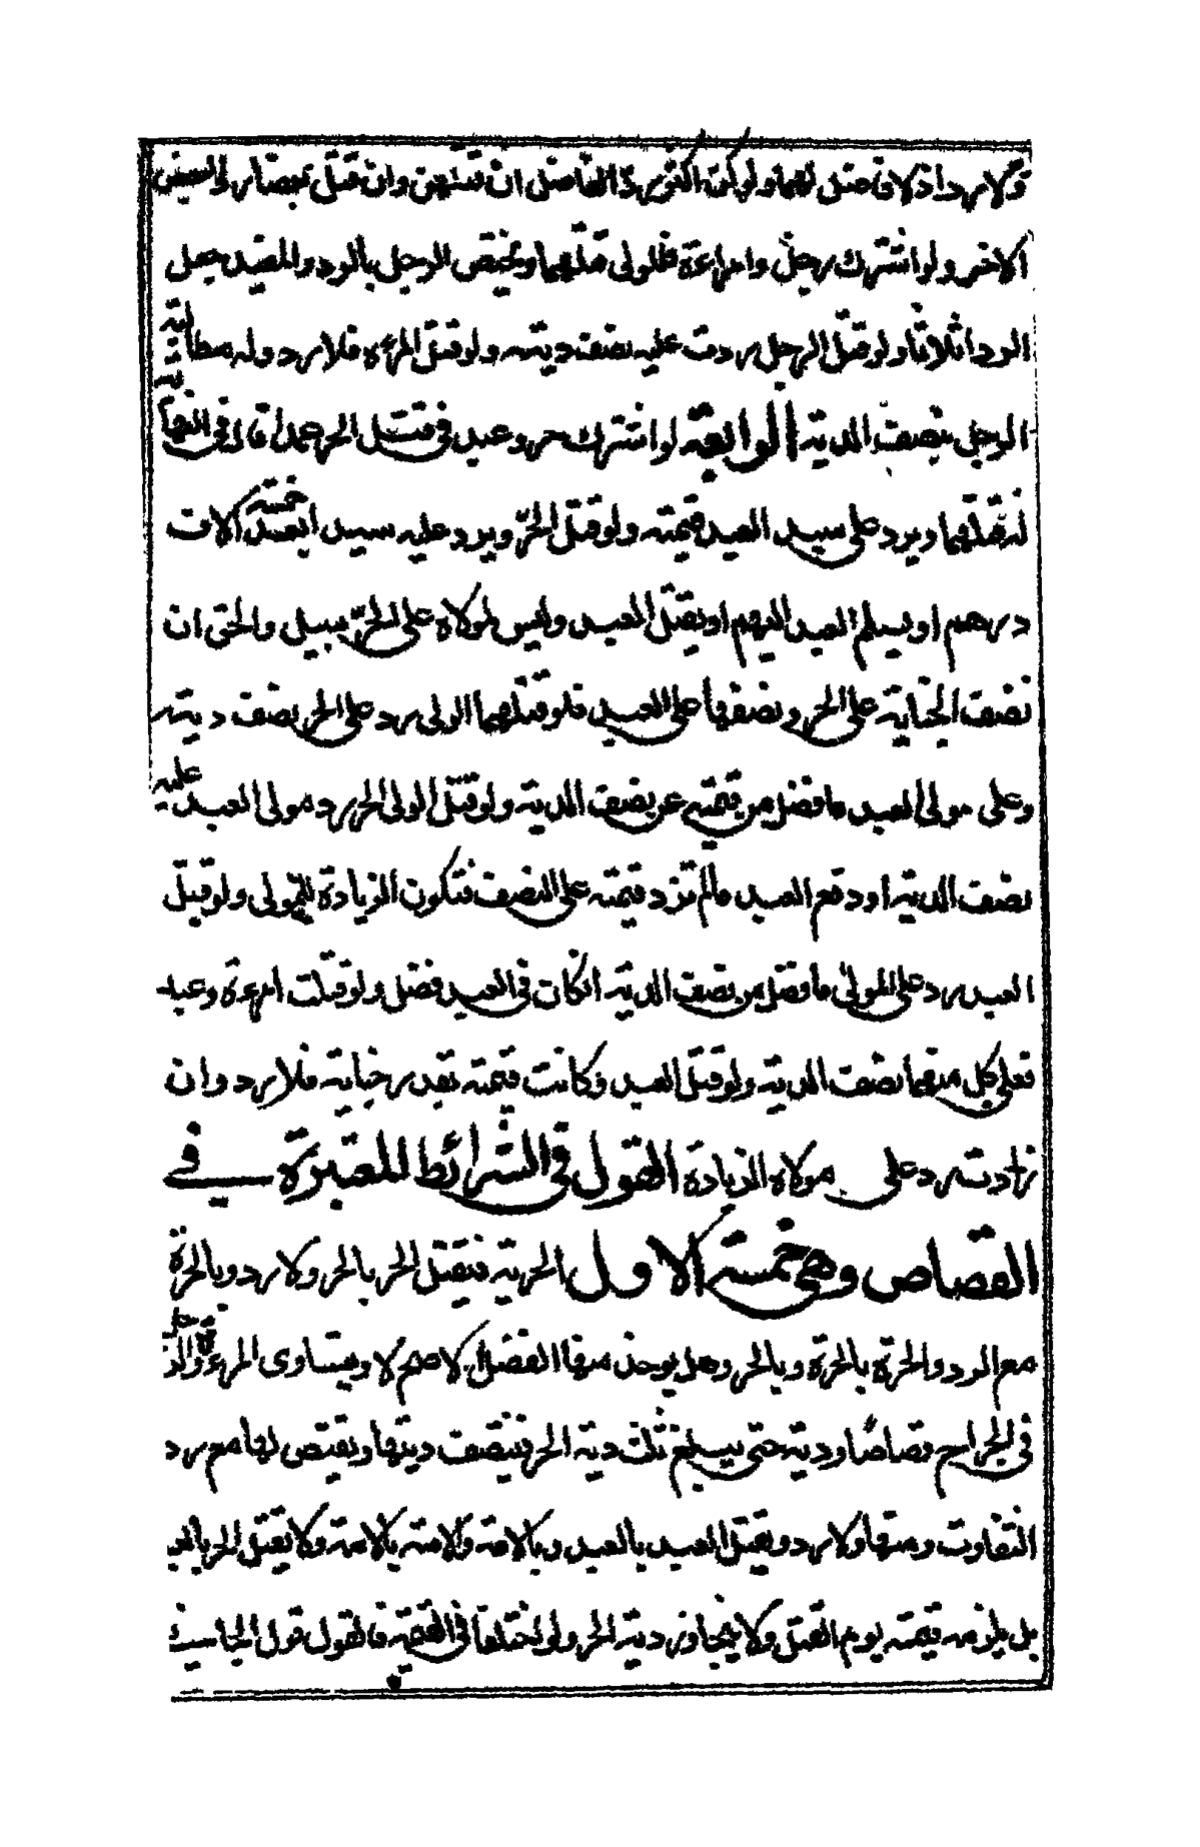 ولا رد اذ لا فاضل لهما ولو كن اكثر رد الفاضل ان قتلهن وان قتل بعضا رد البعض
الاخر ولو اشترك رجل وامراءة فللولى قتلهما ويختص الرجل بالرد والمفيد جعل
الرد اثلاثا ولو قتل الرجل ردت عليه نصف ديته ولو قتل المرءة فلا رد وله مطالبة
الرجل بنصف الدية الرابعة لو اشترك حر وعبد في قتل الحر عمدا قال في النهاية
له قتلهما ويرد على سيد العبد قيمته ولو قتل الحر ويرد عليه سيد العبد خمسة الاف
درهم او يسلم العبد اليهم او يقتل العبد وليس لمولاه على الحر سبيل والحق ان
نصف الجناية على الحر ونصفها على العبد فلو قتلهما الولى رد على الحر نصف ديته
وعلى مولى العبد ما فضل من قيمته عن نصف الدية ولو قتل الولى الحر رد مولى العبد عليه
نصف الدية او دفع العبد مالم تزد قيمته على النصف فتكون الزيادة للمولى ولو قتل
العبد رد على المولى ما فضل من نصف الدية ان كان في العبد فضل ولو قتلت امرءة وعبد
فعلى كل منهما نصف الدية ولو قتل العبد وكانت قيمته بقدر جناية فلا رد وان
زادت رد على مولاه الزيادة القول في الشرائط المعتبرة في
القصاص وهي خمسة الاول الحرية فيقتل الحر بالحر ولا رد وبالحرة
مع الرد والحرة بالحرة وبالحر وهل يوخذ منها الفضل الاصح لا ويتساوى المرءة والرجل
في الجراح قصاصا ودية حتى يبلغ ثلث دية الحر فينصف ديتها ويقتص لها مع رد
التفاوت ومنها ولا رد ويقتل العبد بالعبد وبالامة والامة بالامة ولا يقتل الحر بالعبد
بل يلزمه قيمته يوم القتل ولا يتجاوز دية الحر ولو اختلفا في القيمة فالقول قول الجاني